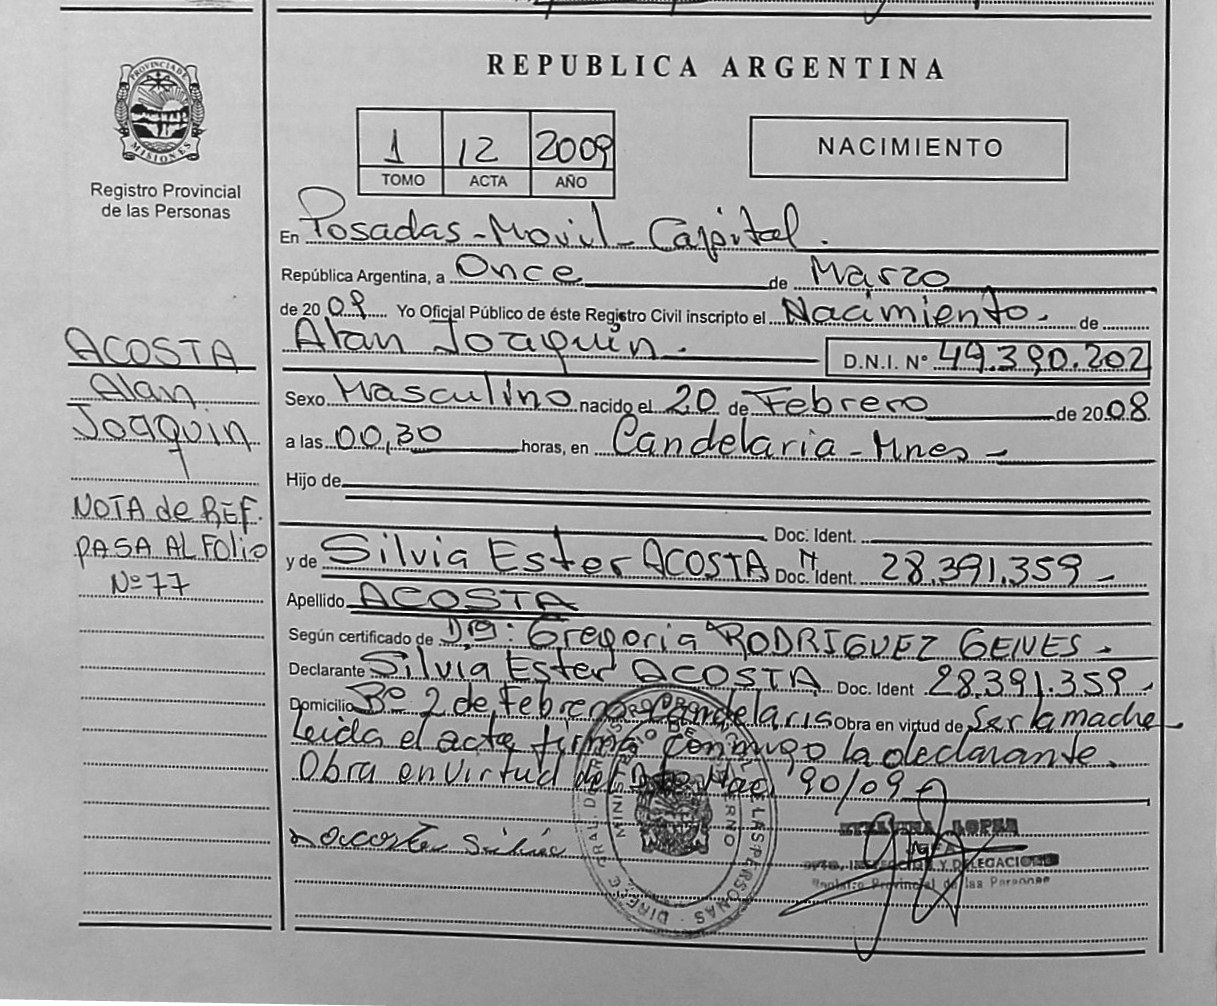 REPUBLICA ARGENTINA
PROVINCIA DE MISIONES
Registro Provincial
de las Personas
1 12 2009
TOMO ACTA AÑO
NACIMIENTO
En Posadas - Movil - Capital.
República Argentina, a Once de Marzo
de 2009 Yo Oficial Público de éste Registro Civil inscripto el Nacimiento. de
Alan Joaquin. D.N.I. N° 49.390.202
Sexo Masculino nacido el 20 de Febrero de 2008
a las 00,30 horas, en Candelaria - Mnes -
Hijo de
Doc. Ident.
y de Silvia Ester ACOSTA Doc. Ident. 28.391.359 -
Apellido ACOSTA
Según certificado de Gregoria RODRIGUEZ GENES -
Declarante Silvia Ester ACOSTA Doc. Ident 28.391.359 -
Domicilio B° 2 de Febrero Candelaria Obra en virtud de Ser la madre
Leida el acta firma conmigo la declarante.
Obra en virtud del Dto Nac 90/09
ACOSTA
Alan
Joaquin
NOTA de REF.
PASA AL FOLIO
N° 77
MINISTERIO DE GOBIERNO
LOPEZ
Y DELEGACIONES
Registro Provincial de las Personas